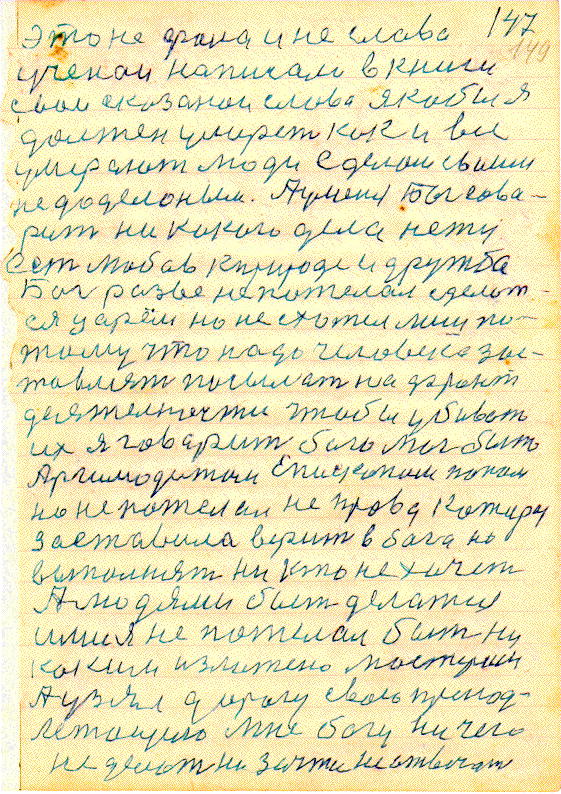 147
149
Это не фраза и не слава
ученой написал в книги
свои сказаной слова якобы я
должен умерет как и все
умерают люди с делом своим
недоделоным. А у меня Бог гова-
рит никокого дела нету
Ест любов к природе и дружба
Бог разве непожелал сделат-
ся царём но не схотел ему по-
тому что надо человека зас-
тавлят посылат на фронт
деятелности чтобы убиват
их я говарит бого мог быть
Архимодитом Епископом попом
но непожелал не права которы
заставила верит в бога но
выполнят ни кто не хочет
А людями быт делатся
ими я не пожелал быт ни
коким изложено мастером
А узял дорогу свою принод-
лежащию мне богу ничего
не делат ни зачто неотвечат